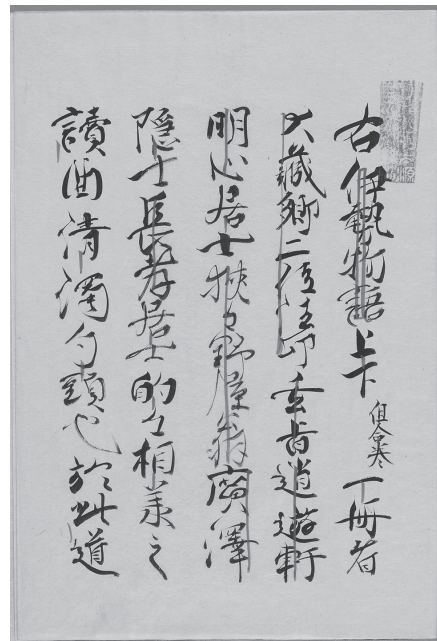 右伊勢物語上下但合巻一冊者
大藏卿二位法印玄旨逍遊軒
明心居士狭々野屋翁廣澤
隠士長孝居士的々相承之
讀曲清濁句頭也於此道